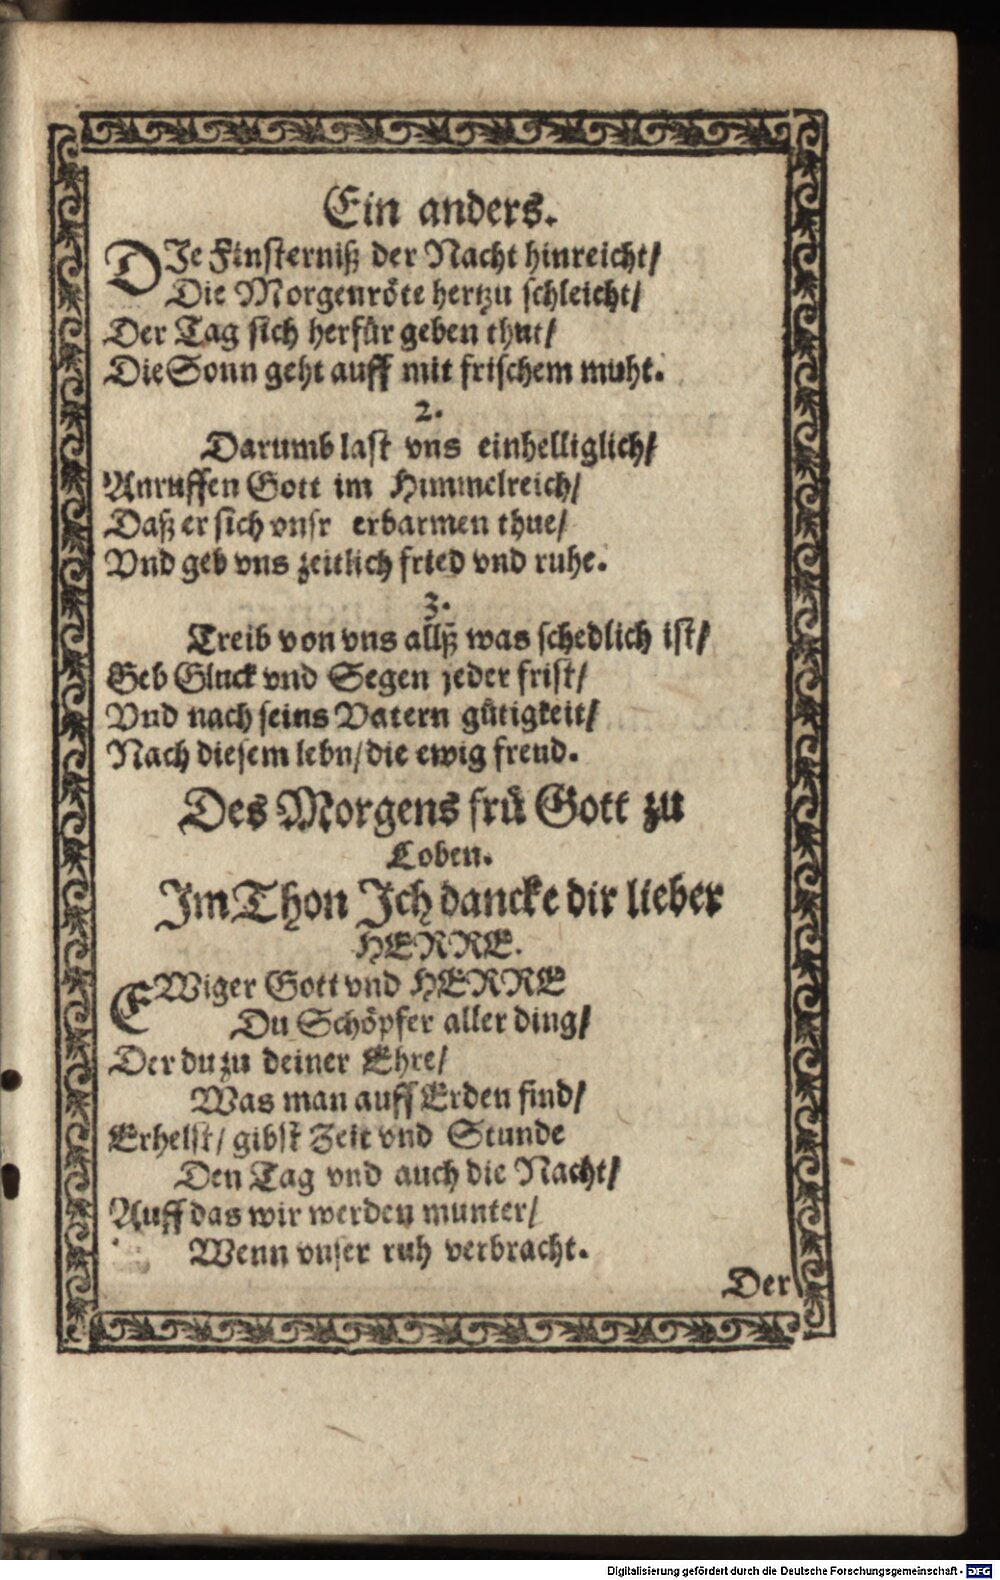 Ein anders.
DJe Finsterniß der Nacht hinreicht/
Die Morgenröte hertzu schleicht/
Der Tag sich herfür geben thut/
Die Sonn geht auff mit frischem muht.
2.
Darumb last vns einhelliglich/
Anruffen Gott im Himmelreich/
Daß er sich vnsr erbarmen thue/
Vnd geb vns zeitlich fried vnd ruhe.
3.
Treib von vns allß was schedlich ist/
Geb Gluck vnd Segen jeder frist/
Vnd nach seins Vatern gütigkeit/
Nach diesem lebn/die ewig freud.
Des Morgens frü Gott zu
Loben.
Im Thon Ich dancke dir lieber
HERRE.
EWiger Gott vnd HERRE
Du Schöpfer aller ding/
Der du zu deiner Ehre/
Was man auff Erden find/
Erhelst/ gibst Zeit vnd Stunde
Den Tag vnd auch die Nacht/
Auff das wir werden munter/
Wenn vnser ruh verbracht.
Der
Digitalisierung gefördert durch die Deutsche Forschungsgemeinschaft - DFG